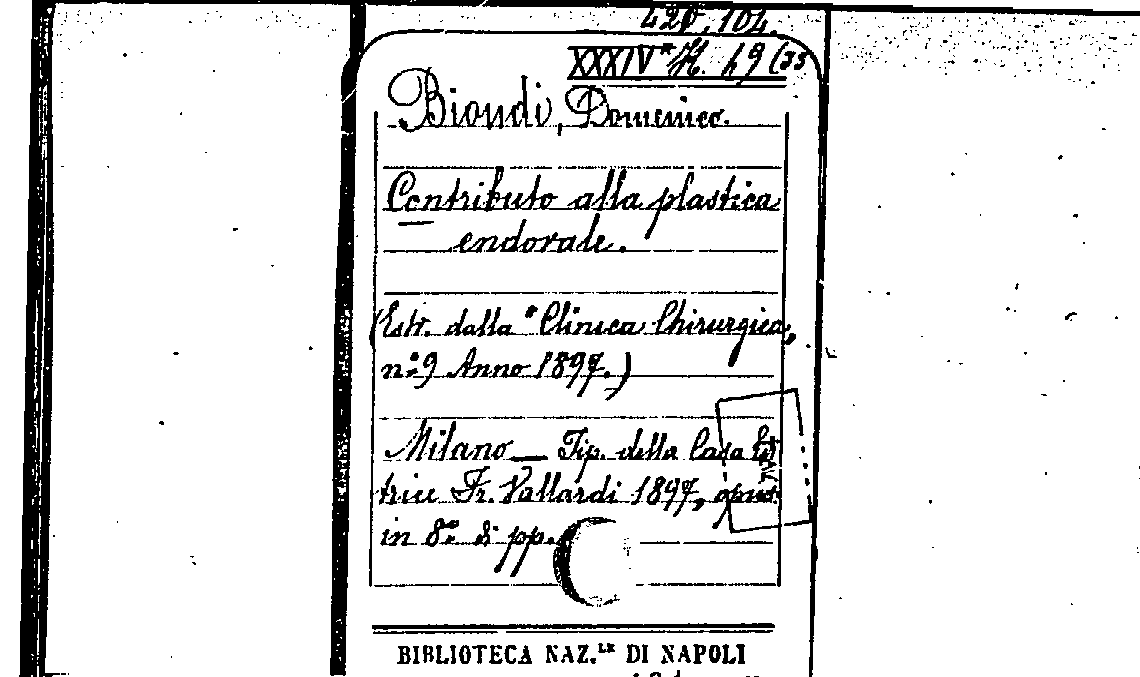 420.104.
XXXIV* H. 49 (33
Biondi, Domenico.
Contributo alla plastica
endorale.
(Estr. dalla "Clinica Chirurgica,
n.º 9 Anno 1897.)
Milano — Tip. della Casa Edi
trice Fr. Vallardi 1897, opus.
in 8.º di pp.
BIBLIOTECA NAZ.LE DI NAPOLI